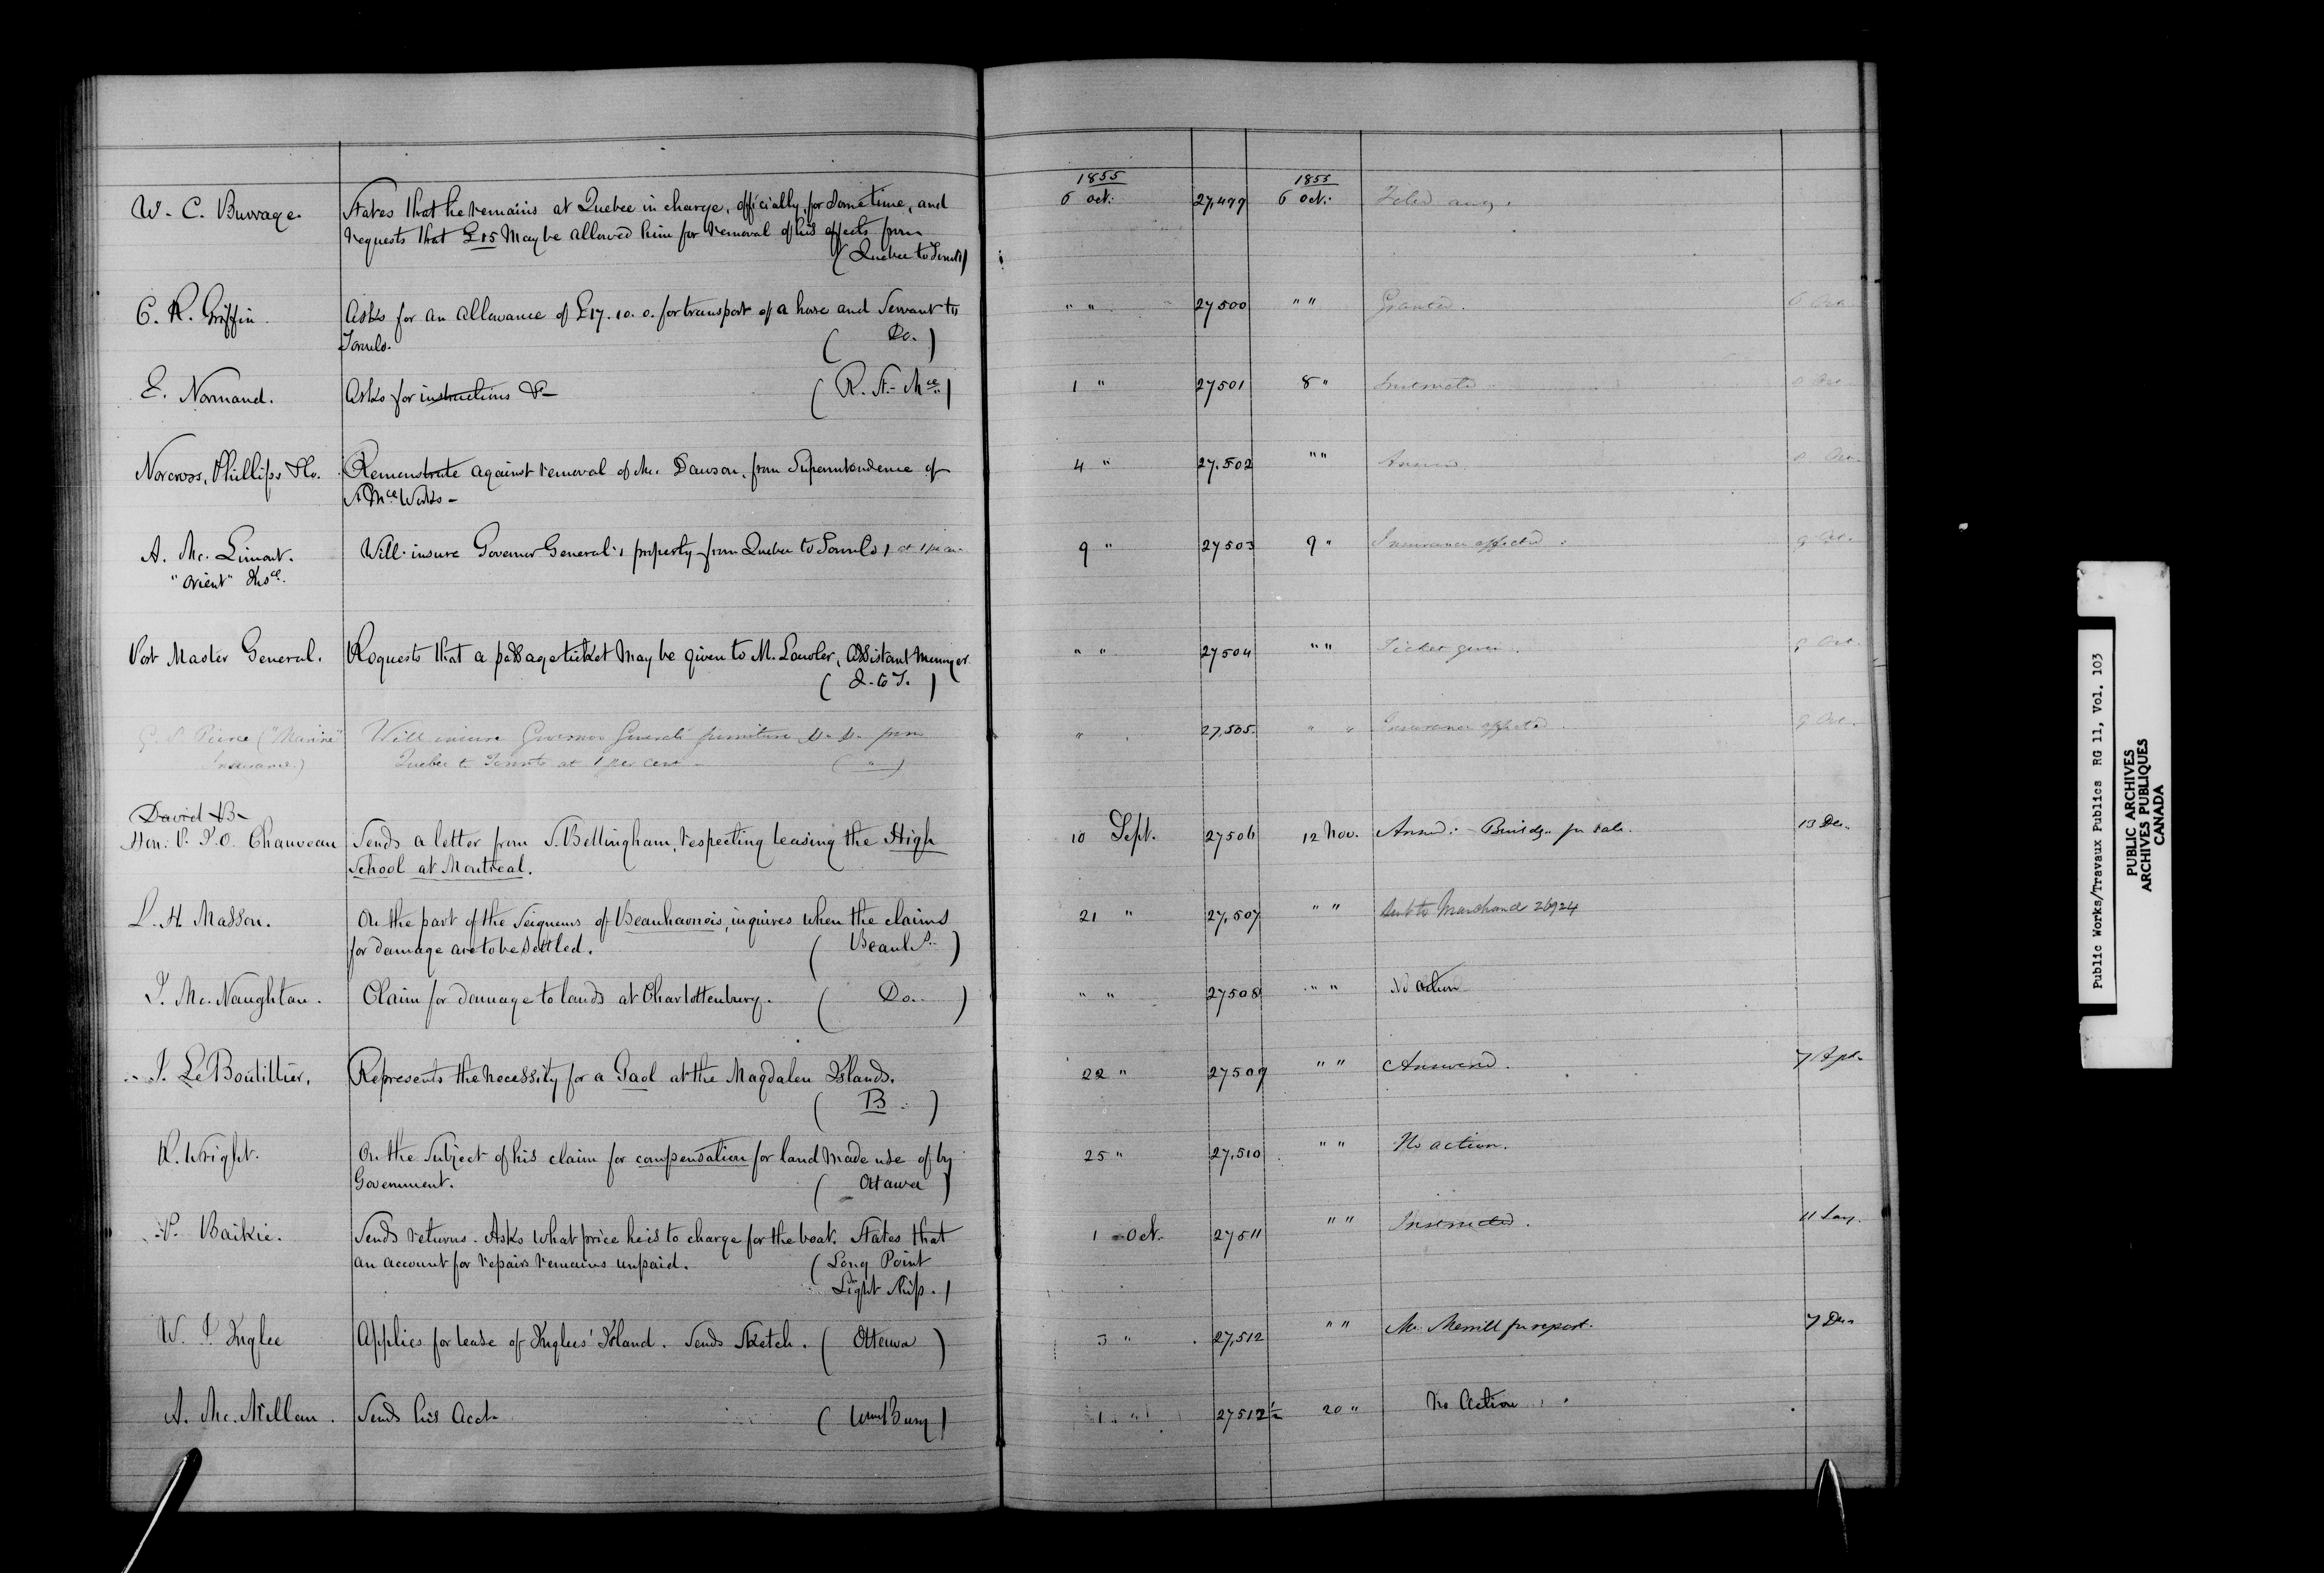 1855 1855
W. C. Burrage. States that he remains at Quebec in charge, officially, for some time, and 6 Oct. 27,499 6 Oct.
requests that £15 may be allowed him for removal of his effects from
(Quebec to Toronto)
C. R. Griffin. Asks for an allowance of £17.10.0. for transport of a horse and Servant to " " 27500 " " Granted. 6 Oct.
Toronto. ( Do. )
E. Normand. Asks for instructions &c ( R. St. Mce ) 1 " 27501 8 " Instructed.
Norcross, Phillips & Co. Remonstrate against removal of Mr. Dawson, from Superintendence of 4 " 27.502 " "
St Mce Works -
A. Mc. Limont. Will insure Governor General's property from Quebec to Toronto, at 1 per cent 9 " 27503 9 " Insurance effected. 9 Oct.
"Orient" Insce.
Post Master General. Requests that a passage ticket may be given to M. Lawler, Assistant Messenger. " " 27504 " " Ticket given. 9 Oct.
( Q. to T. )
Pierce ("Marine" Will insure Governor General's furniture &c. &c. from " 27,505. " " Insurance effected. 9 Oct.
Insurance.) Quebec to Toronto at 1 per cent - ( " )
David &B-
Hon: P. J. O. Chauveau Sends a letter from S. Bellingham, respecting leasing the High 10 Sept. 27506 12 Nov. Answd: Buildgs. for sale. 13 Dec.
School at Montreal.
L. H. Masson. On the part of the Seigneurs of Beauharnois, inquires when the claims 21 " 27,507 " " Sent to Marchand 26924
for damage are to be settled. ( Beauhs. )
J. Mc. Naughton. Claim for damage to lands at Charlottenburg. ( Do. ) " " 27508 " " No action
J. LeBoutillier, Represents the necessity for a Gaol at the Magdalen Islands. 22 " 27509 " " Answered. 7 Apl.
( B. )
R. Wright. On the subject of his claim for compensation for land made use of by 25 " 27,510 " " No action.
Government. ( Ottawa )
P. Baikie. Sends returns. Asks what price he is to charge for the boat. States that 1 Oct. 27511 " " Instructed. 11 Jany.
an account for repairs remains unpaid. ( Long Point
Light Ship. )
W. J. Inglee Applies for lease of Inglees' Island. Sends Sketch. ( Ottawa ) 3 " 27,512 " " Mr. Merrill for report. 7 Dec.
A. Mc. Millan. Sends his Acct. 1 " 27512½ 20 " No Action
Public Works/Travaux Publics RG 11, Vol. 103
PUBLIC ARCHIVES
ARCHIVES PUBLIQUES
CANADA